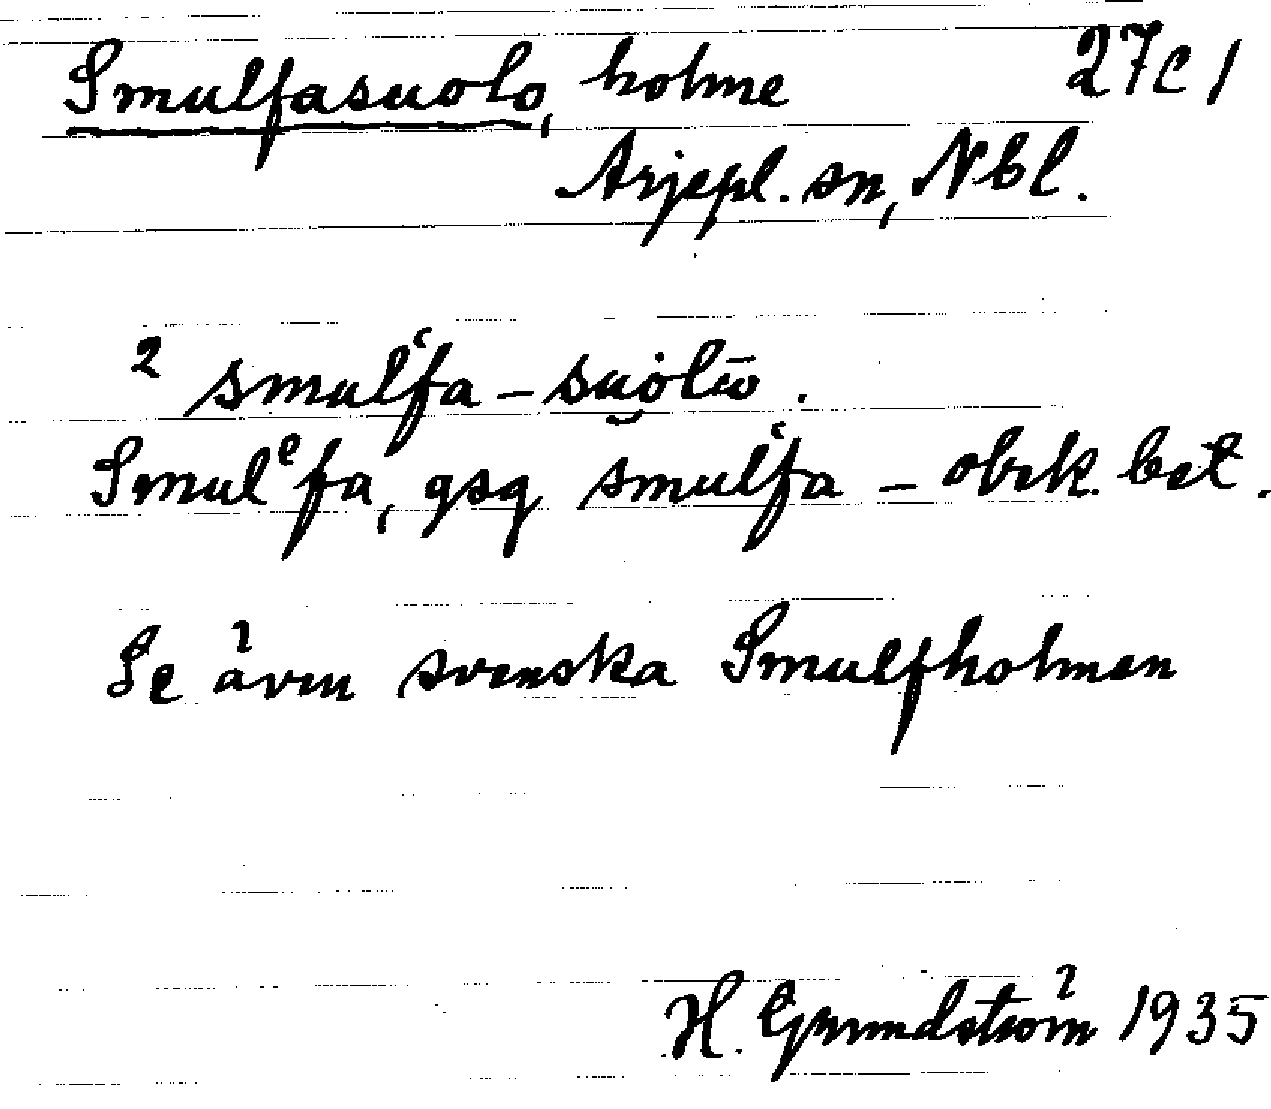 Smulfasuolo, holme 27C1
Arjepl. sn, Nbl.
2 smulʿfa - su̮ȯlω̄.
Smulᵉfa, gsg smulʿfa - obek. bet.
Se även svenska Smulfholmen
H. Grundström 1935